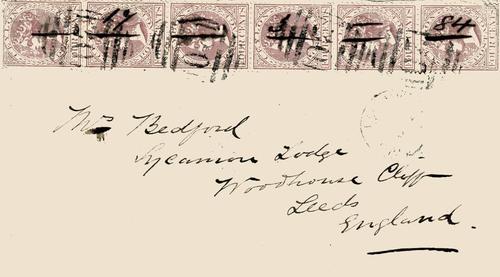 14
84
Mrs Bedford
Sycamore Lodge
Woodhouse Cliff
Leeds
England.